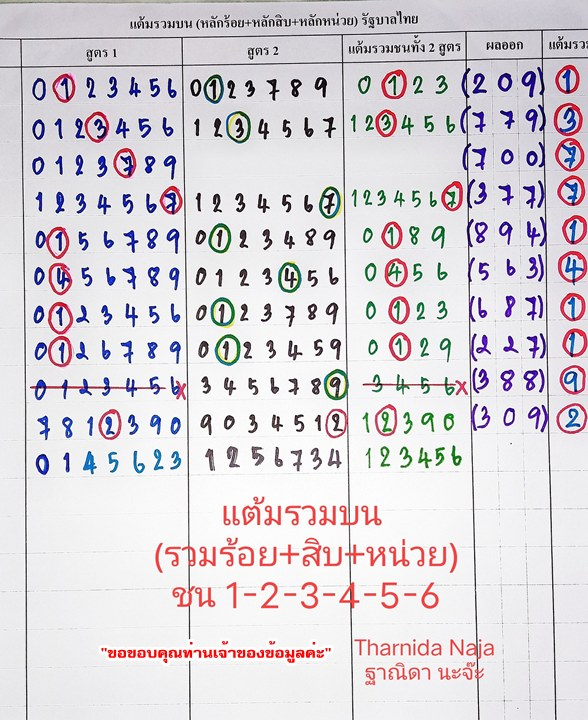 แต้มรวมบน (หลักร้อย+หลักสิบ+หลักหน่วย) รัฐบาลไทย
สูตร 1 สูตร 2 แต้มรวมชนทั้ง 2 สูตร ผลออก แต้มรวม
0 1 2 3 4 5 6 0 1 2 3 7 8 9 0 1 2 3 (2 0 9) 1
0 1 2 3 4 5 6 1 2 3 4 5 6 7 1 2 3 4 5 6 (7 7 9) 3
0 1 2 3 7 8 9 (7 0 0) 7
1 2 3 4 5 6 7 1 2 3 4 5 6 7 1 2 3 4 5 6 7 (3 7 7) 7
0 1 5 6 7 8 9 0 1 2 3 4 8 9 0 1 8 9 (8 9 4) 1
0 4 5 6 7 8 9 0 1 2 3 4 5 6 0 4 5 6 (5 6 3) 4
0 1 2 3 4 5 6 0 1 2 3 7 8 9 0 1 2 3 (6 8 7) 1
0 1 2 6 7 8 9 0 1 2 3 4 5 9 0 1 2 9 (2 2 7) 1
0 1 2 3 4 5 6 x 3 4 5 6 7 8 9 3 4 5 6 x (3 8 8) 9
7 8 1 2 3 9 0 9 0 3 4 5 1 2 1 2 3 9 0 (3 0 9) 2
0 1 4 5 6 2 3 1 2 5 6 7 3 4 1 2 3 4 5 6
แต้มรวมบน
(รวมร้อย+สิบ+หน่วย)
ชน 1-2-3-4-5-6
"ขอขอบคุณท่านเจ้าของข้อมูลค่ะ" Tharnida Naja
ฐาณิดา นะจ๊ะ